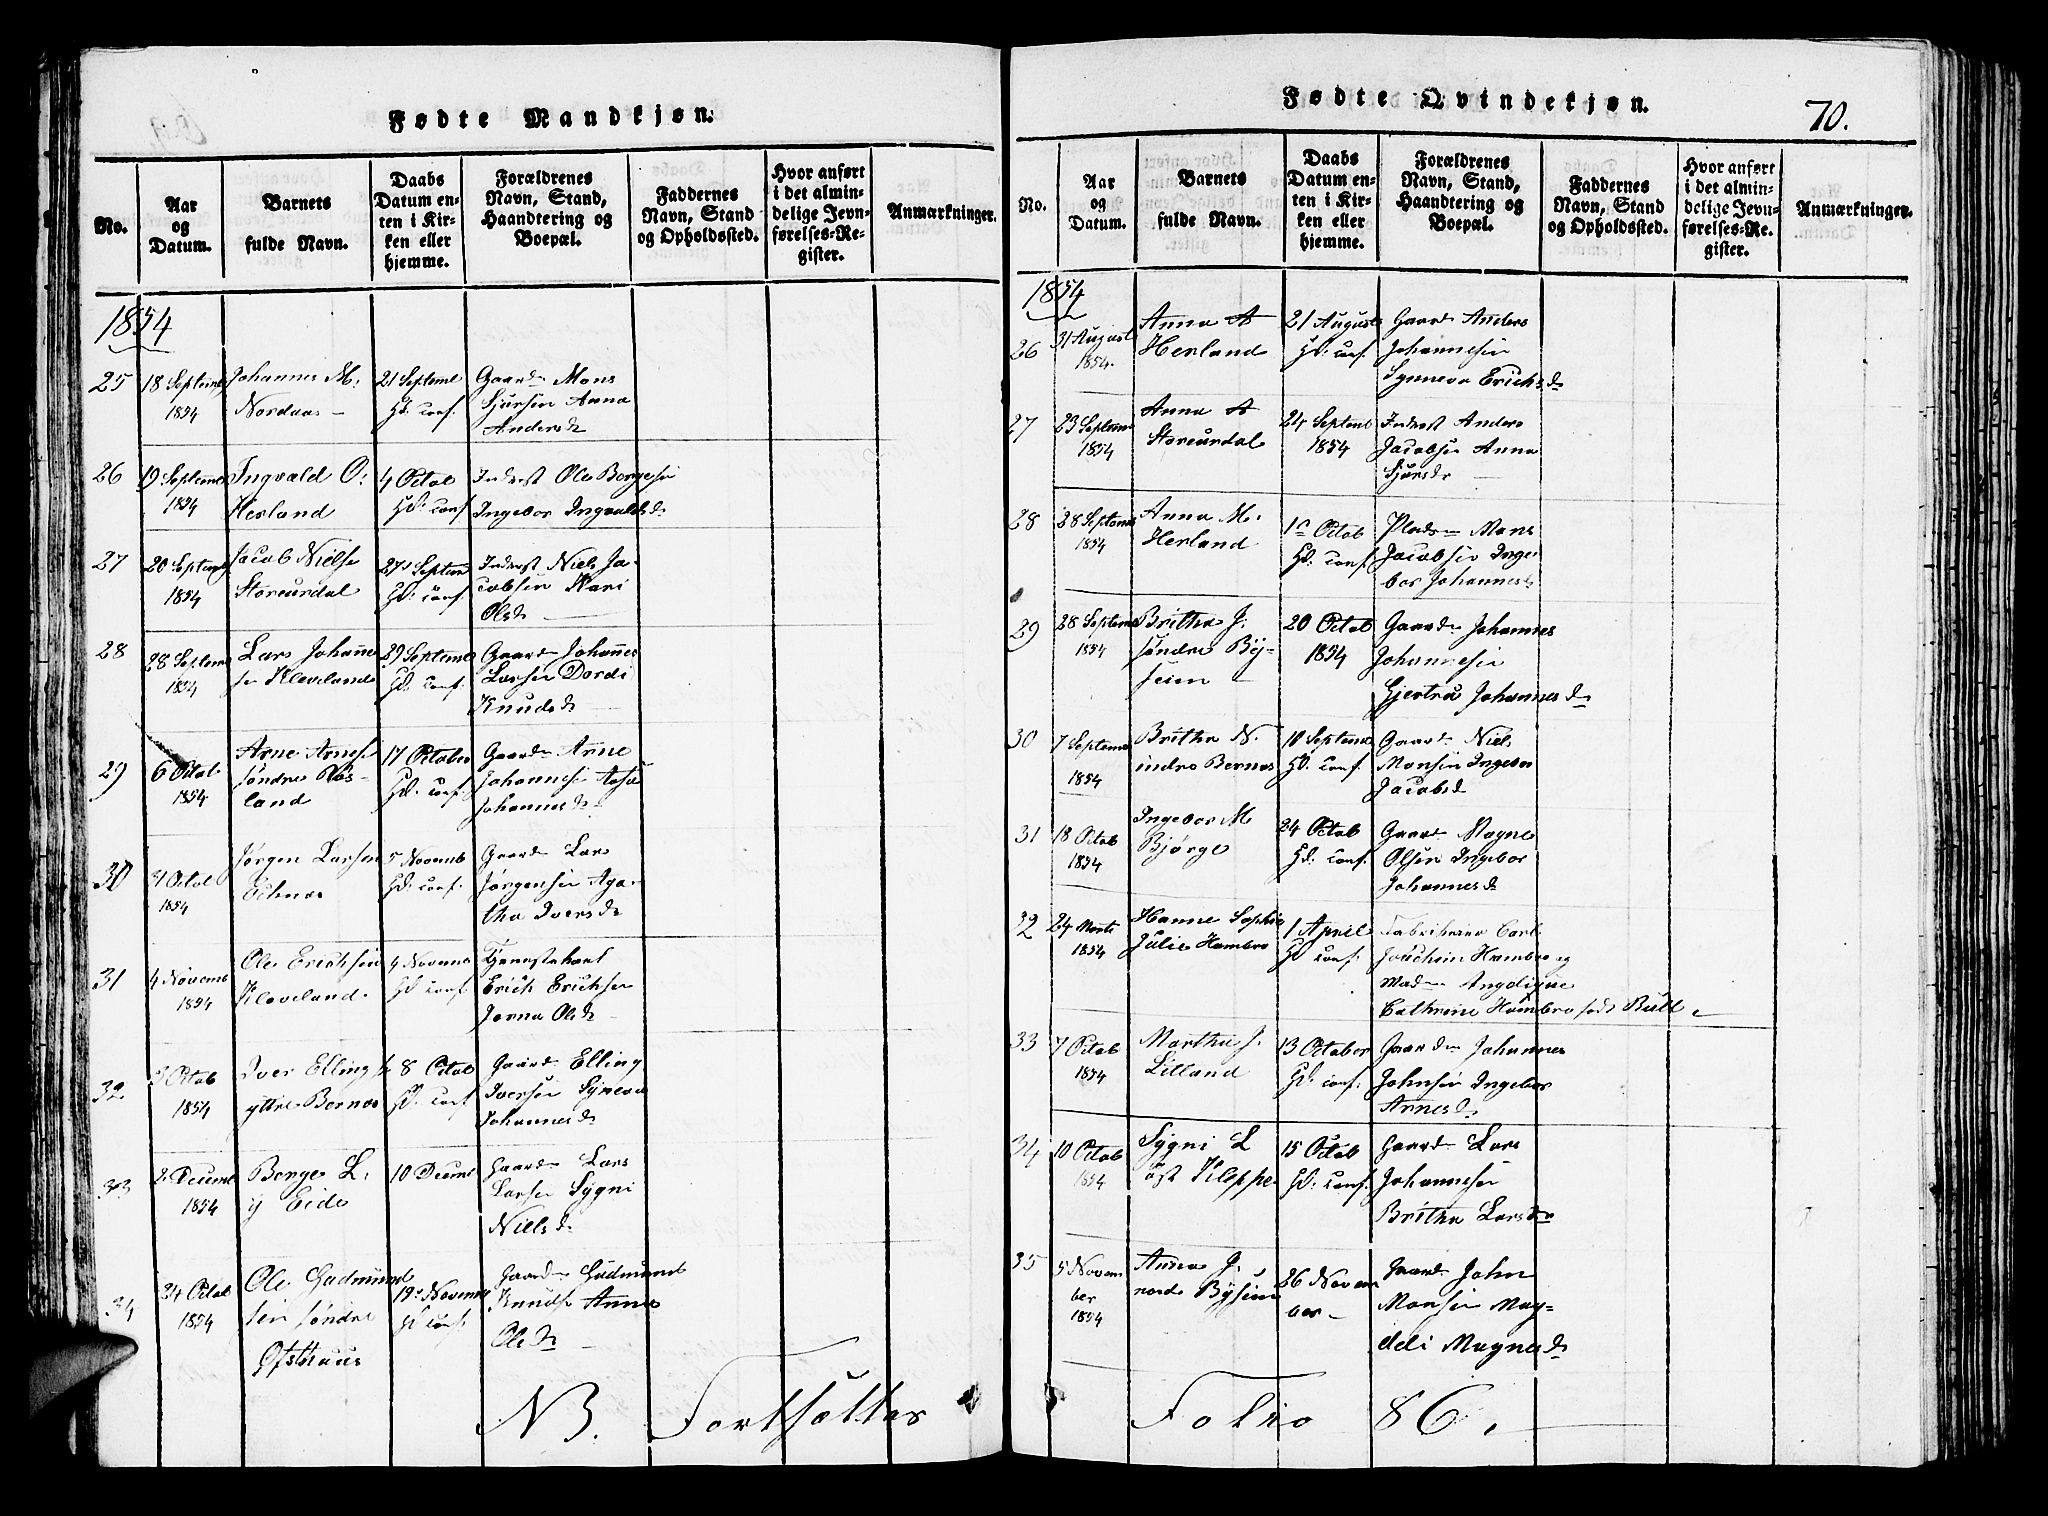 Fødte Mandkjøn.
No.
Aar og Datum.
Barnets fulde Navn.
Daabs Datum enten i Kirken eller hjemme.
Forældrenes Navn, Stand, Haandtering og Boepæl.
Faddernes Navn, Stand og Opholdssted.
Hvor anført i det almindelige Jevnførelses-Register.
Anmærkninger.
1854
25 18 Septembr 1854
Johannes M:
Nordaas –
21 Septembr
Hd: conf.
Gaardm Mons
Sjursen Anna
Andersdr
26 19 Septembr 1854
Ingvald O:
Herland
4 Octob
Hd: conf
Inderst Ole Borgesen
Ingebor Ingvaldsdr
27 20 Septembr 1854
Jacob Nielse
Storeurdal
27 Septem
Hd: conf.
Inderst Niels Ja-
cobsen Kari
Olsdr
28 28 Septemb 1854
Lars Johanne
sen Kleveland
29 Septemb
Hd. conf.
Gaardm Johannes
Larsen Dordi
Knudsdr
29 6 Octob 1854
Arne Arnese
søndre
land
17 October
Hd. conf.
Gaardm Arne
Johannesen
Johannesdr
30 31 Octob 1854
Jørgen Larsen
Eitnes
5 Novemb
Hd: conf.
Gaardm Lars
Jørgensen Aga-
tha Iversdr
31 4 Novemb 1854
Ole Ericksen
Kleveland.
4 Novemb
Hd conf.
Tjenestekarl
Erick Ericksen
Jorna Olsdr
32. 3 Octob 1854
Iver Ellings
yttre Bernes
8 Octob
Hd: conf
Gaardm Elling
Iversen Syneva
Johannesdr
33 2 Decemb 1854
Borge L:
ij Eide
10 Decemb
Gaardm Lars
Larsen Sygni
Nielsdr
34 24 Octob 1854
Ole Gudmund
sen søndre
Øfsthuus
19 Novemb
Hd conf.
Gaardm Gudmund
Knudse Anna
Olsdr
NB. Fortsættes
Fødte Qvindekjøn.
70.
No.
Aar og Datum.
Barnets fulde Navn.
Daabs Datum enten i Kirken eller hjemme.
Forældrenes Navn, Stand, Haandtering og Boepæl.
Faddernes Navn, Stand og Opholdssted.
Hvor anført i det almindelige Jevnførelses-Register.
Anmærkninger.
1854
26 August 1854.
Anna A
Herland
21 August
Hd: conf.
Gaardm Anders
Johannesen
Synneva Ericksdr
27 23 Septemb 1854
Anna A
Storeurdal
24 Septemb
1854
Inderst Anders
Jacobsen Anna
Sjursdr
28 28 Septemb 1854
Anna M.
Herland
1 Octob
Hd. conf.
Pladsm Mons
Jacobsen Inge
bor Johannesdr
29 28 Septemb 1854
Britha J.
søndre By-
seim
20 Octob
1854
Gaardm Johannes
Johannesen
Gjertru Johannesdr
30 7 Septemb 1854
Britha N.
indre Bernes
10 Septemb
Hd. conf.
Gaardm Niels
Monsen Ingebor
Jacobsdr
31 18 Octob 1854
Ingebor M
Bjørge
24 Octob
Hd: conf.
Gaardm Magne
Olsen Ingebor
Johannesdr
32 24 Marts 1854
Hanne Sophie
Julie Hambro
1 April
Hd conf.
Carl
Joachim Hambro og
Mad Angelique
Cathrine Hambro født Bull.
33 7 Octob 1854
Martha J.
Lilland
13 October
Hd: conf.
Gaardm Johannes
Johnsen Ingebor
Arnesdr
34 10 Octob 1854
Sygni L
øst Kleppe.
15 Octob
Hd: conf.
Gaardm Lars
Johannesen
Britha Larsdr
35 5 Novem
ber
1854
Anna J.
nordr Byseim
26 Novem
ber –
Gaardm John
Monsen Mag-
deli Magnesdr
Folio 86.